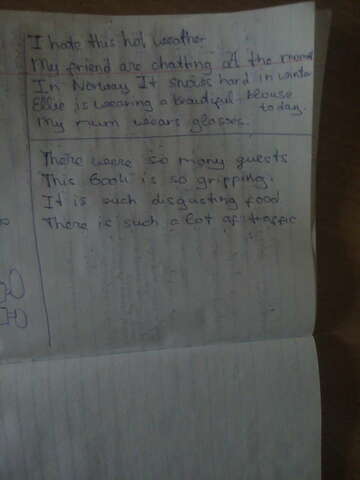 I hate this hot weather
My friend are chatting at the moment
In Norway It snows hard in winter
Ellie is wearing a beautiful blouse
today.
My mum wears glasses.
There were so many guests
This book is so gripping.
It is such disgusting food
There is such a lot of traffic